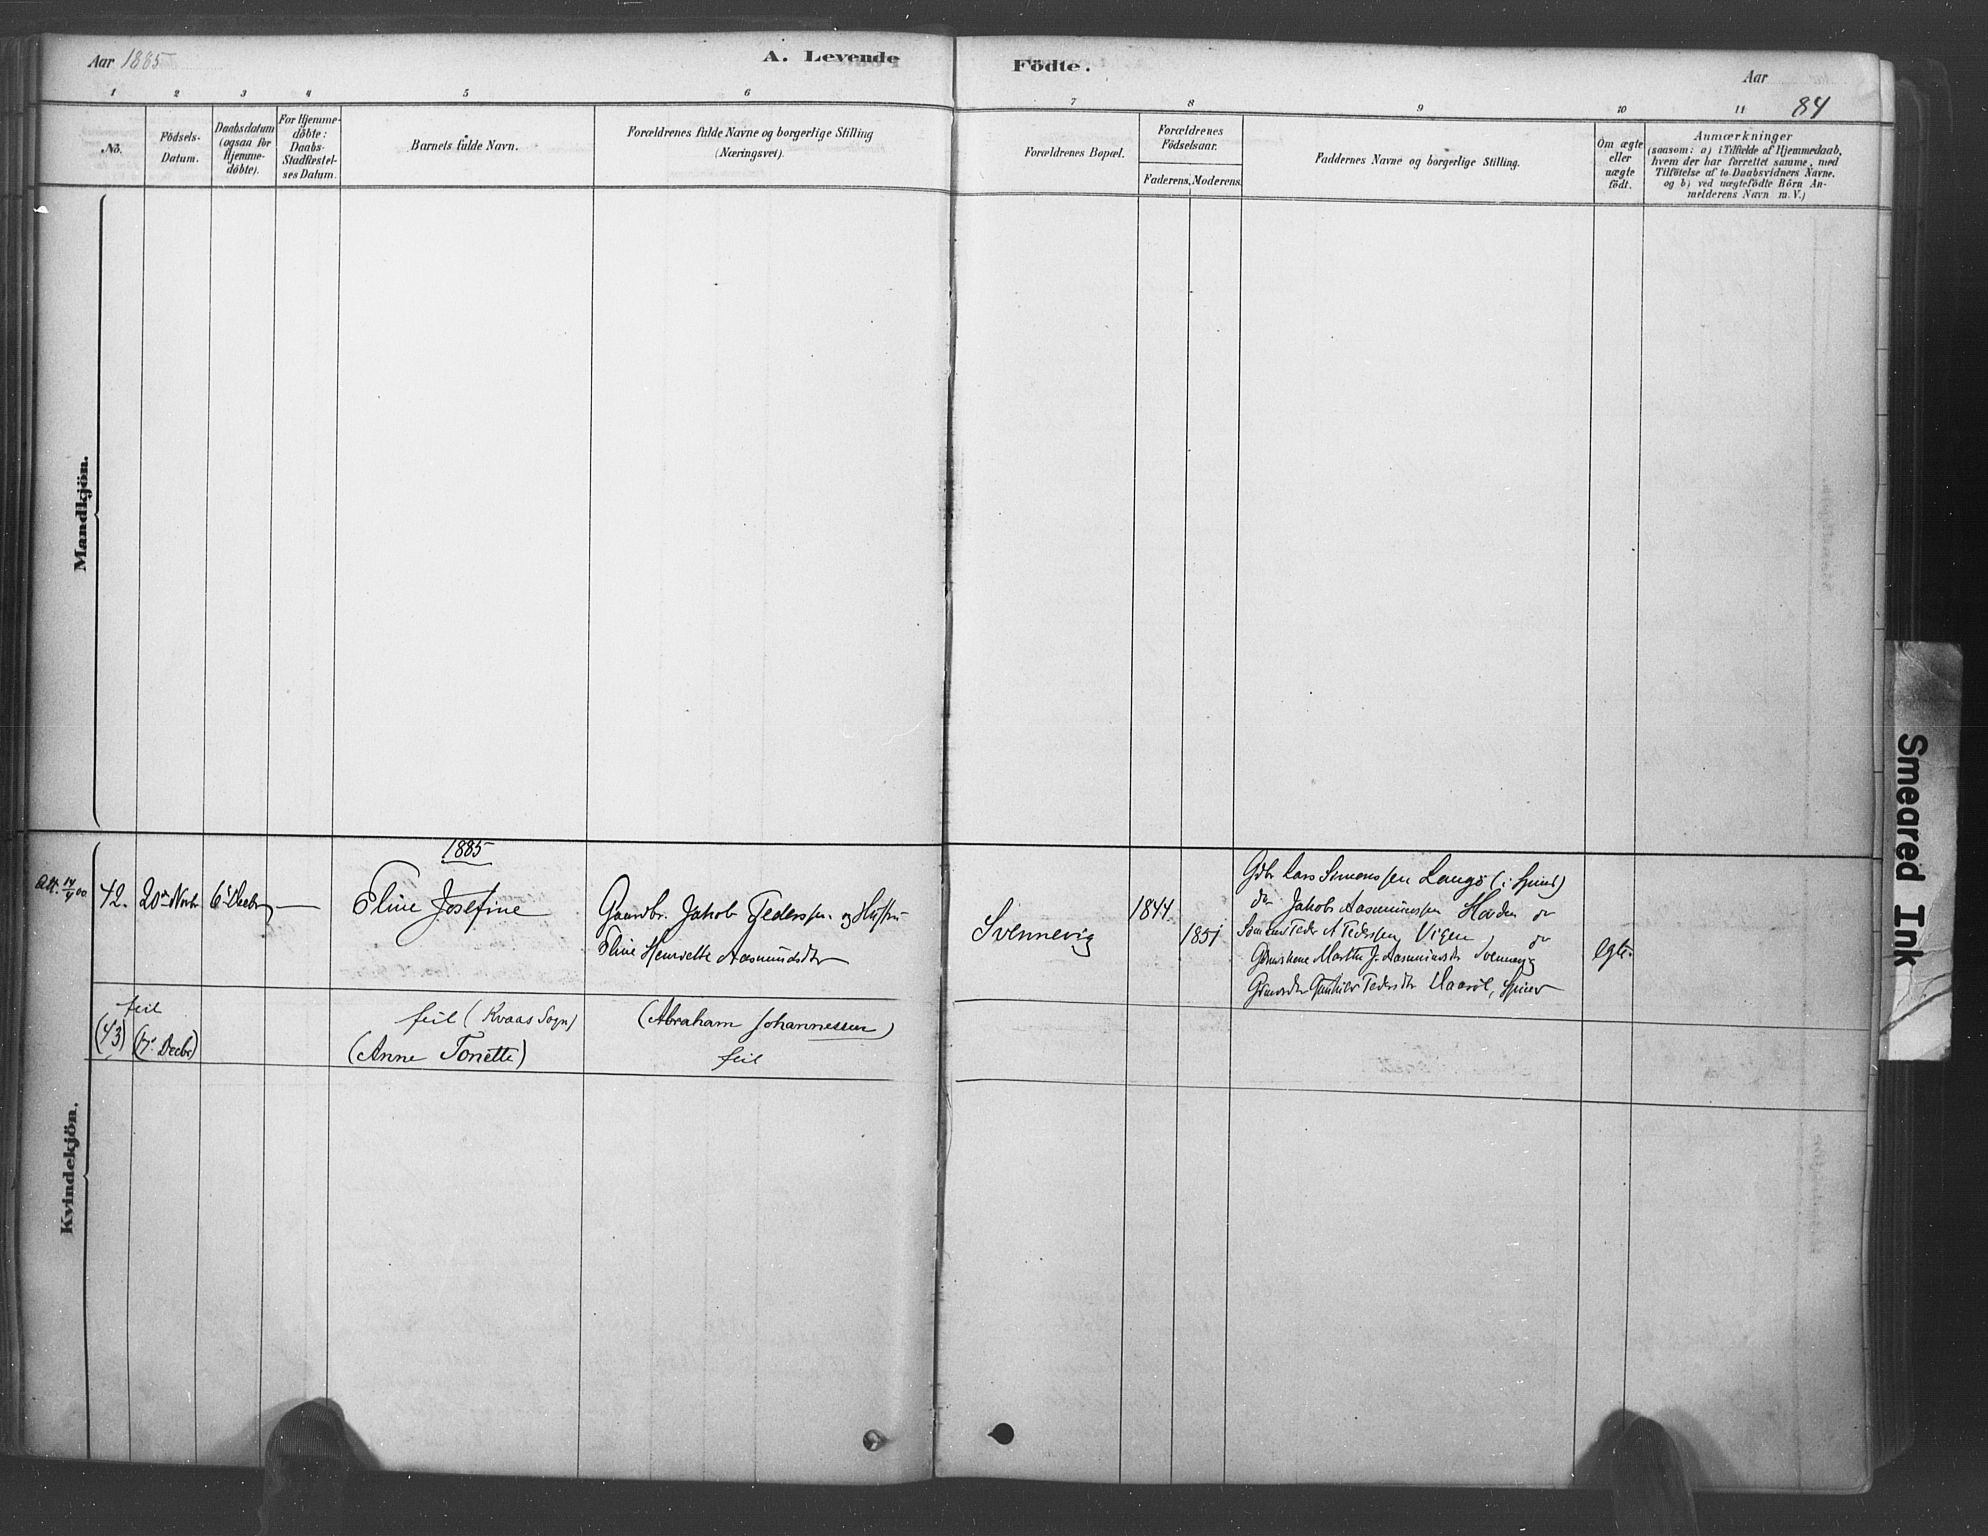 Aar 1885
A. Levende
Födte.
Aar
84
1 2 3 4 5 6 7 8 9 10 11
No.
Födsels-
Datum.
Daabsdatum
(ogsaa for
Hjemme-
døbte).
For Hjemme-
døbte:
Daabs-
Stadfæstel-
ses Datum.
Barnets fulde Navn.
Forældrenes fulde Navne og borgerlige Stilling
(Næringsvei).
Forældrenes Bopæl.
Forældrenes
Födselsaar.
Faderens. Moderens.
Faddernes Navne og borgerlige Stilling.
Om ægte
eller
uægte
födt.
Anmærkninger
(saasom: a) i Tilfælde af Hjemmedaab,
hvem der har forrettet samme, med
Tilföielse af to Daabsvidners Navne,
og b) ved uægtefödte Börn An-
melderens Navn m. V.)
Mandkjön.
Kvindekjön.
1885
Att. 14/4 00
42.
20de Novbr
6te Decbr
Eline Josefine
Gaardbr. Jakob Pedersen og Hustru
Eline Henriette Aasmundsdtr
Svennevig
1844
1851
Gdbr Lars Simonssen Langö (i Spind)
do Jakob Aasmunssen
Pedersen Vigen
Marthe J. Aasmundsdtr Svennevig
Pedersdtr
egte.
feil
(43)
(7de Decbr)
feil (Kvaas Sogn)
(Anne Tonette)
(Abraham Johannessen)
feil
Smeared Ink